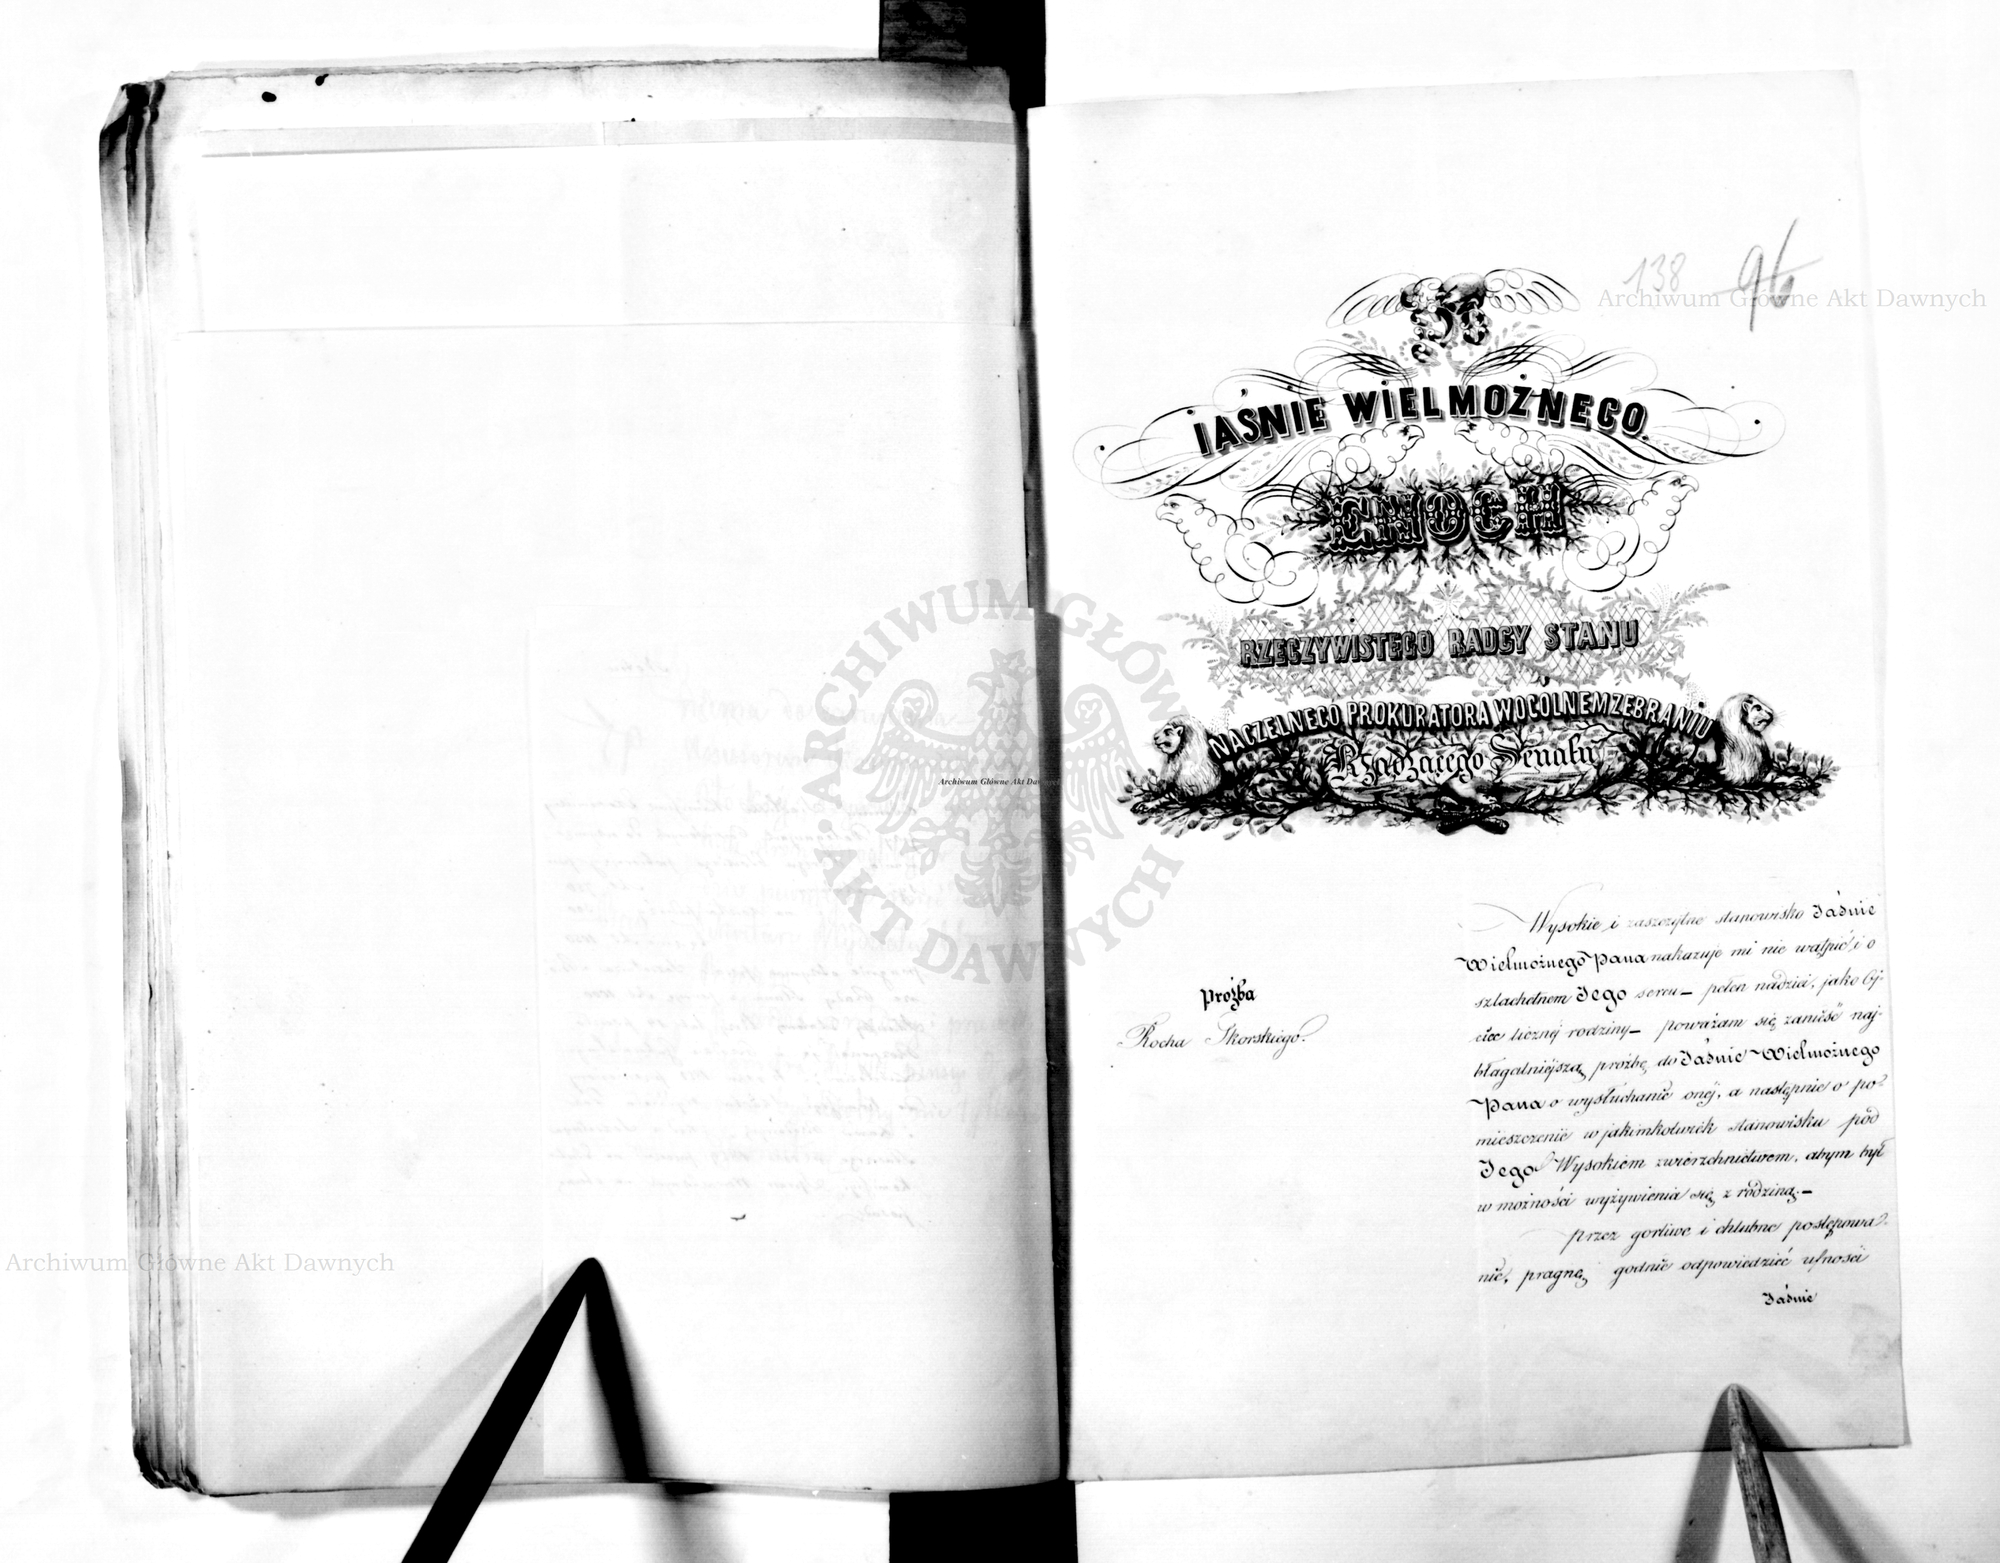 138 96
Do
IAŚNIE WIELMOŻNEGO.
ENOCH
RZECZYWISTEGO RADCY STANU
NACZELNEGO PROKURATORA W OGÓLNEM ZEBRANIU
Rządzącego Senatu
Wysokie i zaszczytne stanowisko Jaśnie
Wielmożnego Pana nakazuje mi nie wątpić i o
szlachetnem Jego sercu – pełen nadziei, jako Oj-
ciec licznej rodziny – poważam się zanieść naj-
błagalniejszą prożbę do Jaśnie Wielmożnego
Pana o wysłuchanie onéj, a następnie o po-
mieszczenie w jakimkolwiek stanowisku pod
Jego Wysokiem zwierzchnictwem, abym był
w możności wyżywienia się z rodziną. –
Przez gorliwe i chlubne postępowa-
nie, pragnę godnie odpowiedzieć ufności
Jaśnie
Prożba
Rocha Skorskiego.
Archiwum Główne Akt Dawnych
ARCHIWUM GŁÓWNE AKT DAWNYCH
Archiwum Główne Akt Dawnych
Archiwum Główne Akt Dawnych